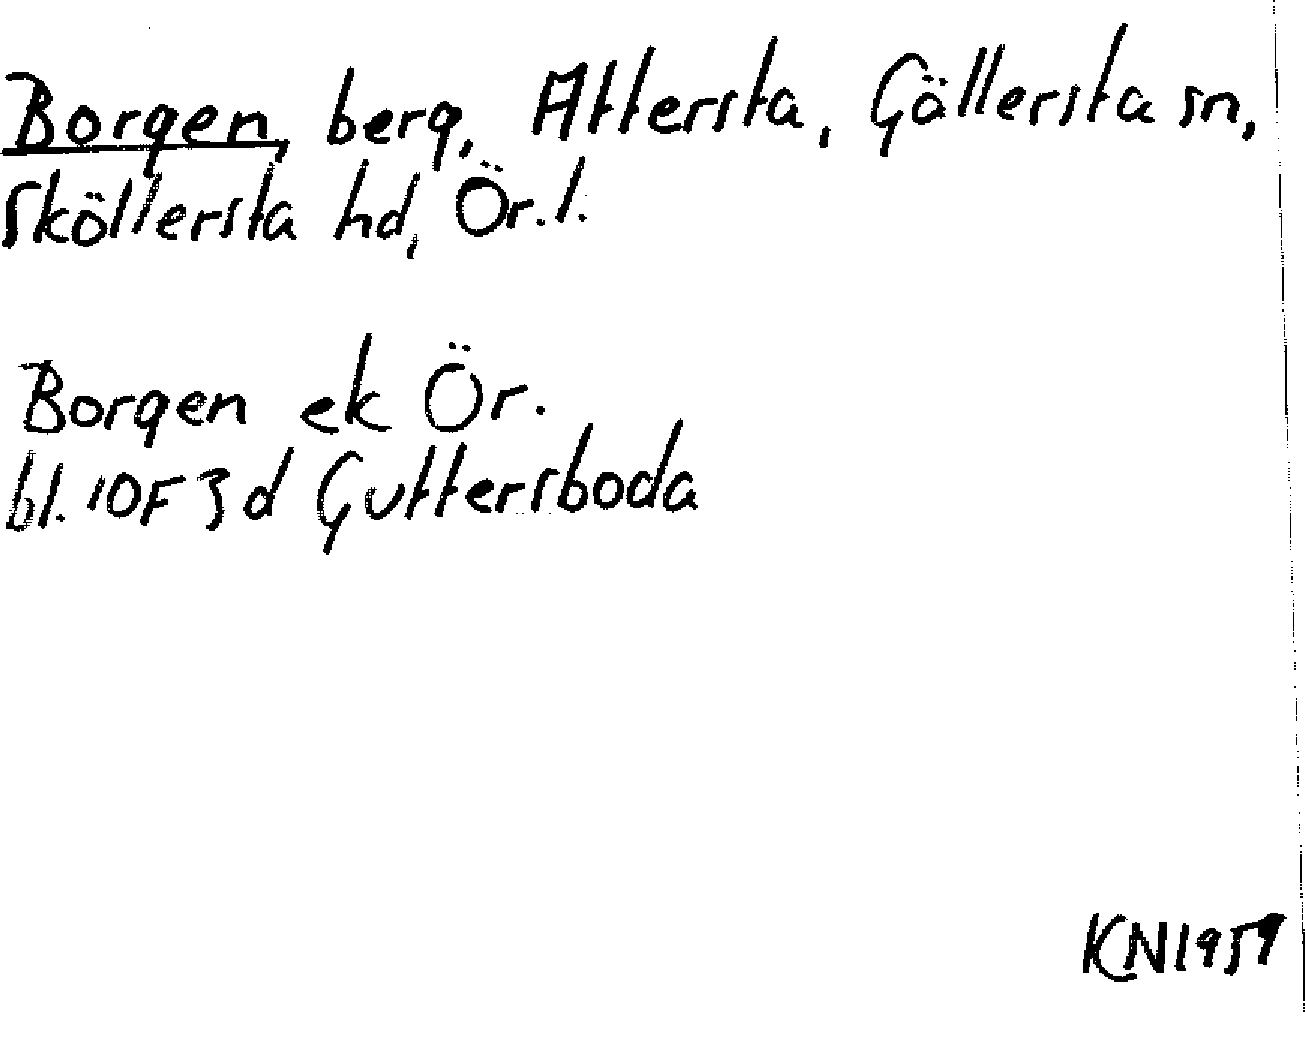 Borgen, berg, Attersta, Gällersta sn,
Sköllersta hd, Ör. l.
Borgen ek Ör.
bl. 10F 3d Guttersboda